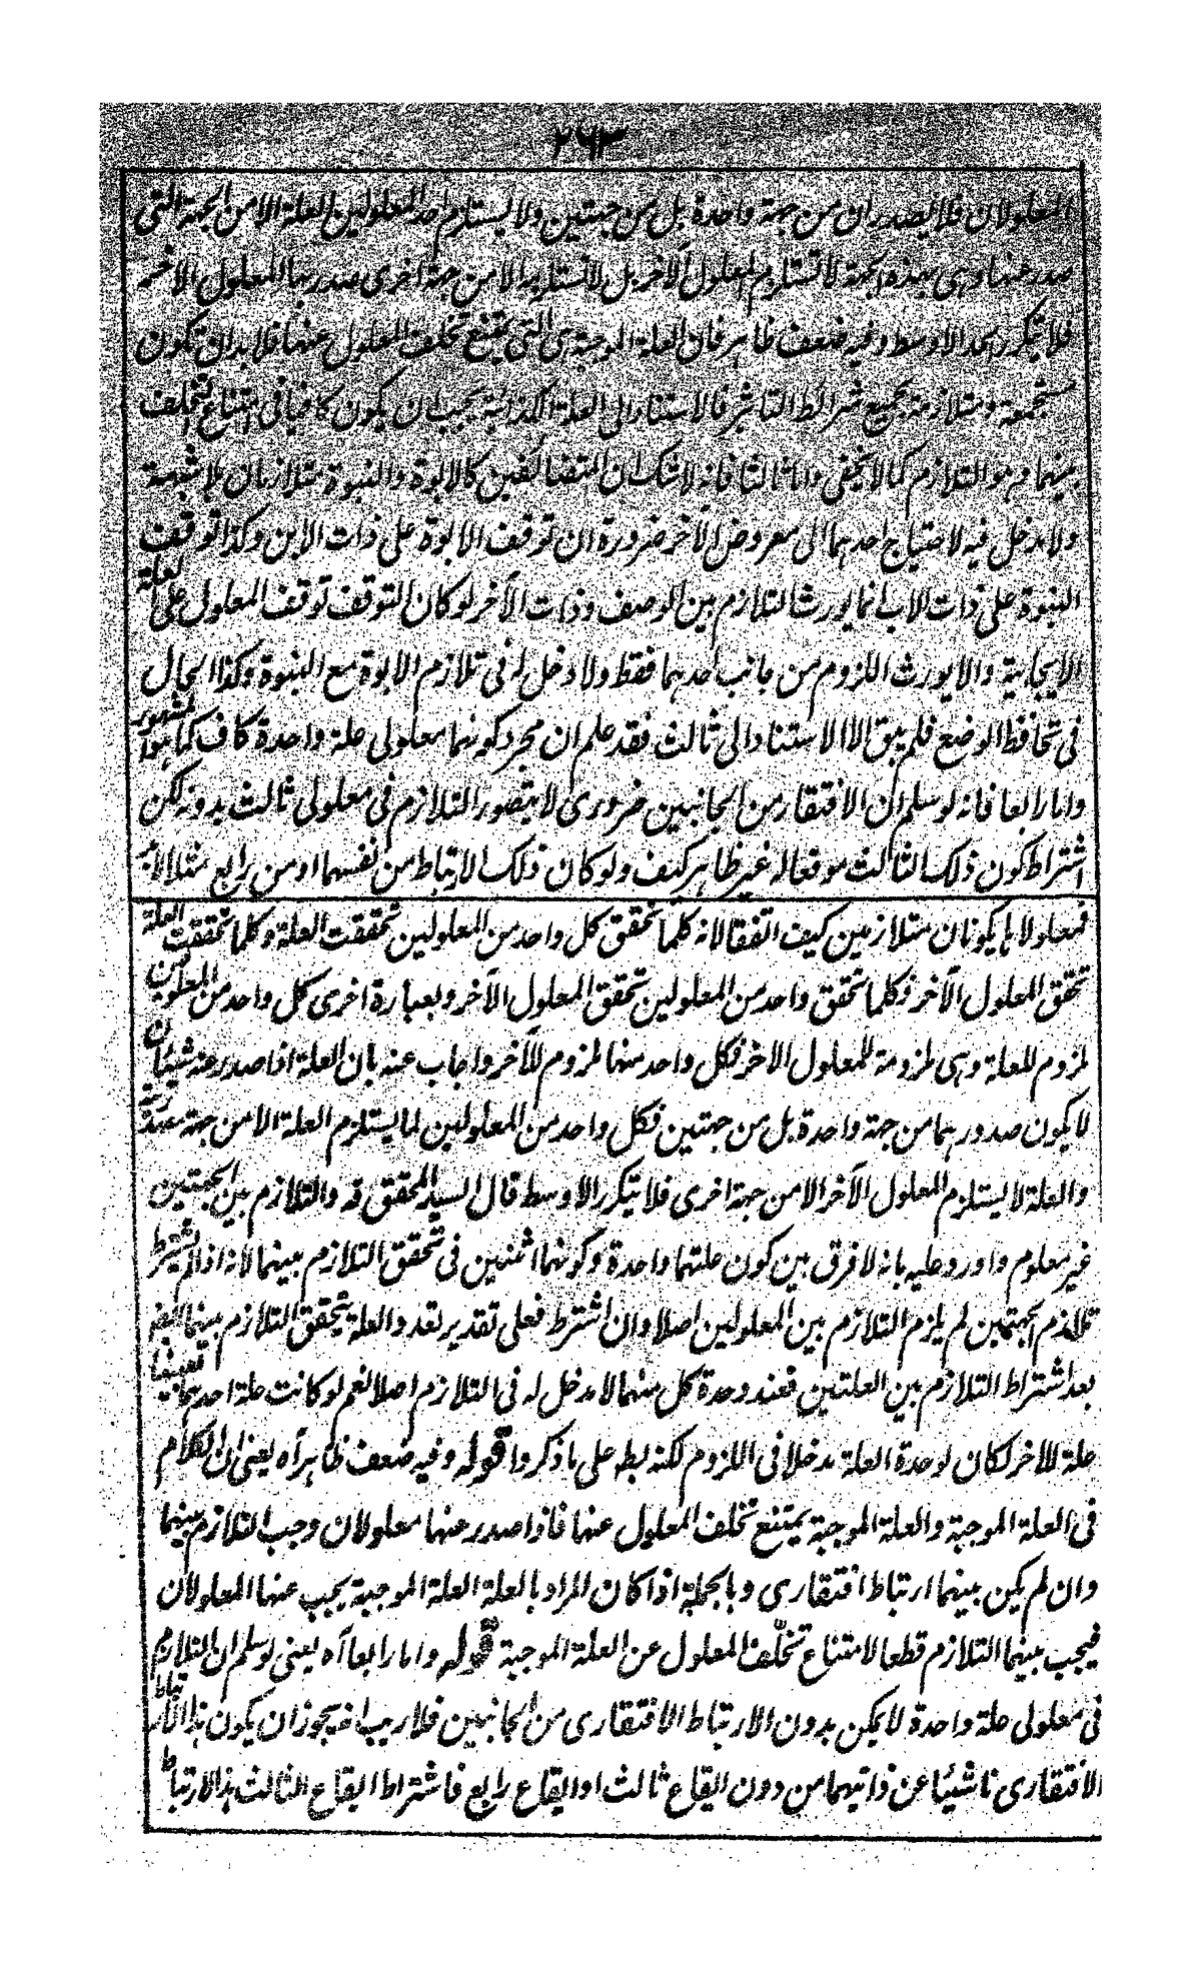 ٢٦٣
المعلولان فلا يصدران من جهة واحدة بل من جهتين ولا يستلزم احد المعلولين العلة الا من الجهة التى
صدر عنها وهى بهذه الجهة لا تستلزم المعلول الآخر بل لا تستلزمه الا من جهة اخرى صدر بها المعلول الآخر
فلا يتكرر الحد الاوسط وفيه ضعف ظاهر فان العلة الموجبة هى التى يمتنع تخلف المعلول عنها فلا بد ان تكون
مستجمعة ومتلازمة بجميع شرائط التاثير فالاستناد الى العلة الكذائية يجب ان يكون كافيا فى امتناع التخلف
بينهما وهو التلازم كما لا يخفى واما ثالثا فانه لا شك ان المتضائفين كالابوة والبنوة متلازمان بلا شبهة
ولا مدخل فيه لاحتياج احدهما الى معروض الآخر ضرورة ان توقف الابوة على ذات الابن وكذا توقف
البنوة على ذات الاب انما يورث التلازم بين الوصف وذات الآخر لو كان التوقف توقف المعلول على العلة
الايجابية والا يورث اللزوم من جانب احدهما فقط ولا دخل له فى تلازم الابوة مع البنوة وكذا الحال
فى تحافظ الوضع فلم يبق الا الاستناد الى ثالث فقد علم ان مجرد كونهما معلولى علة واحدة كاف كما هو المشهور
واما رابعا فانه لو سلم ان الافتقار من الجانبين ضرورى لا يتصور التلازم فى معلولى ثالث بدونه لكن
اشتراط كون ذلك الثالث موقعا له غير ظاهر كيف ولو كان ذلك الارتباط من نفسهما او من رابع مثلا
فمعلولاها يكونان متلازمين كيف اتفقا لانه كلما تحقق كل واحد من المعلولين تحققت العلة وكلما تحققت العلة
تحقق المعلول الآخر فكلما تحقق واحد من المعلولين تحقق المعلول الآخر وبعبارة اخرى كل واحد من المعلولين
ملزوم للعلة وهى ملزومة للمعلول الآخر فكل واحد منهما ملزوم للآخر واجاب عنه بان العلة اذا صدر عنه شيئان
لا يكون صدورهما من جهة واحدة بل من جهتين فكل واحد من المعلولين انما يستلزم العلة الا من جهة مصدرية
والعلة لا يستلزم المعلول الآخر الا من جهة اخرى فلا يتكرر الاوسط قال السيد المحقق قه والتلازم بين الجهتين
غير معلوم واورد عليه بانه لا فرق بين كون علتهما واحدة وكونهما اثنين فى تحقق التلازم بينهما لانه اذا لم يشترط
تلازم الجهتين لم يلزم التلازم بين المعلولين اصلا وان اشترط فعلى تقدير تعدد العلة يتحقق التلازم بينهما ايضا
بعد اشتراط التلازم بين العلتين فعند وحدة كل منهما لا مدخل له فى التلازم اصلا نعم لو كانت علة احدهما بعينها
علة للآخر لكان لوحدة العلة مدخلا فى اللزوم لكنه بطه على ما ذكروا قوله وفيه ضعف ظاهر آه يعنى ان الكلام
فى العلة الموجبة والعلة الموجبة يمتنع تخلف المعلول عنها فاذا صدر عنها معلولان وجب التلازم بينهما
وان لم يكن بينهما ارتباط افتقارى وبالجملة اذا كان المراد بالعلة العلة الموجبة يجب عنها المعلولان
فيجب بينهما التلازم قطعا لامتناع تخلف المعلول عن العلة الموجبة قوله واما رابعا آه يعنى لو سلم ان التلازم
فى معلولى علة واحدة لا يمكن بدون الارتباط الافتقارى من الجانبين فلا ريب انه يجوز ان يكون هذا الارتباط
الافتقارى ناشيئا عن ذاتيهما من دون ايقاع ثالث او ايقاع رابع فاشتراط ايقاع الثالث هذا الارتباط